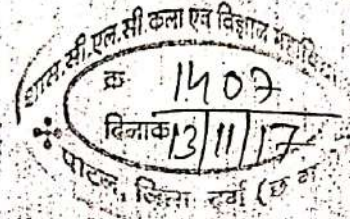 शास. सी.एल.सी. कला एवं विज्ञान
क्र 1407
दिनांक 13/11/17
पाटन, जिला दुर्ग (छ ग